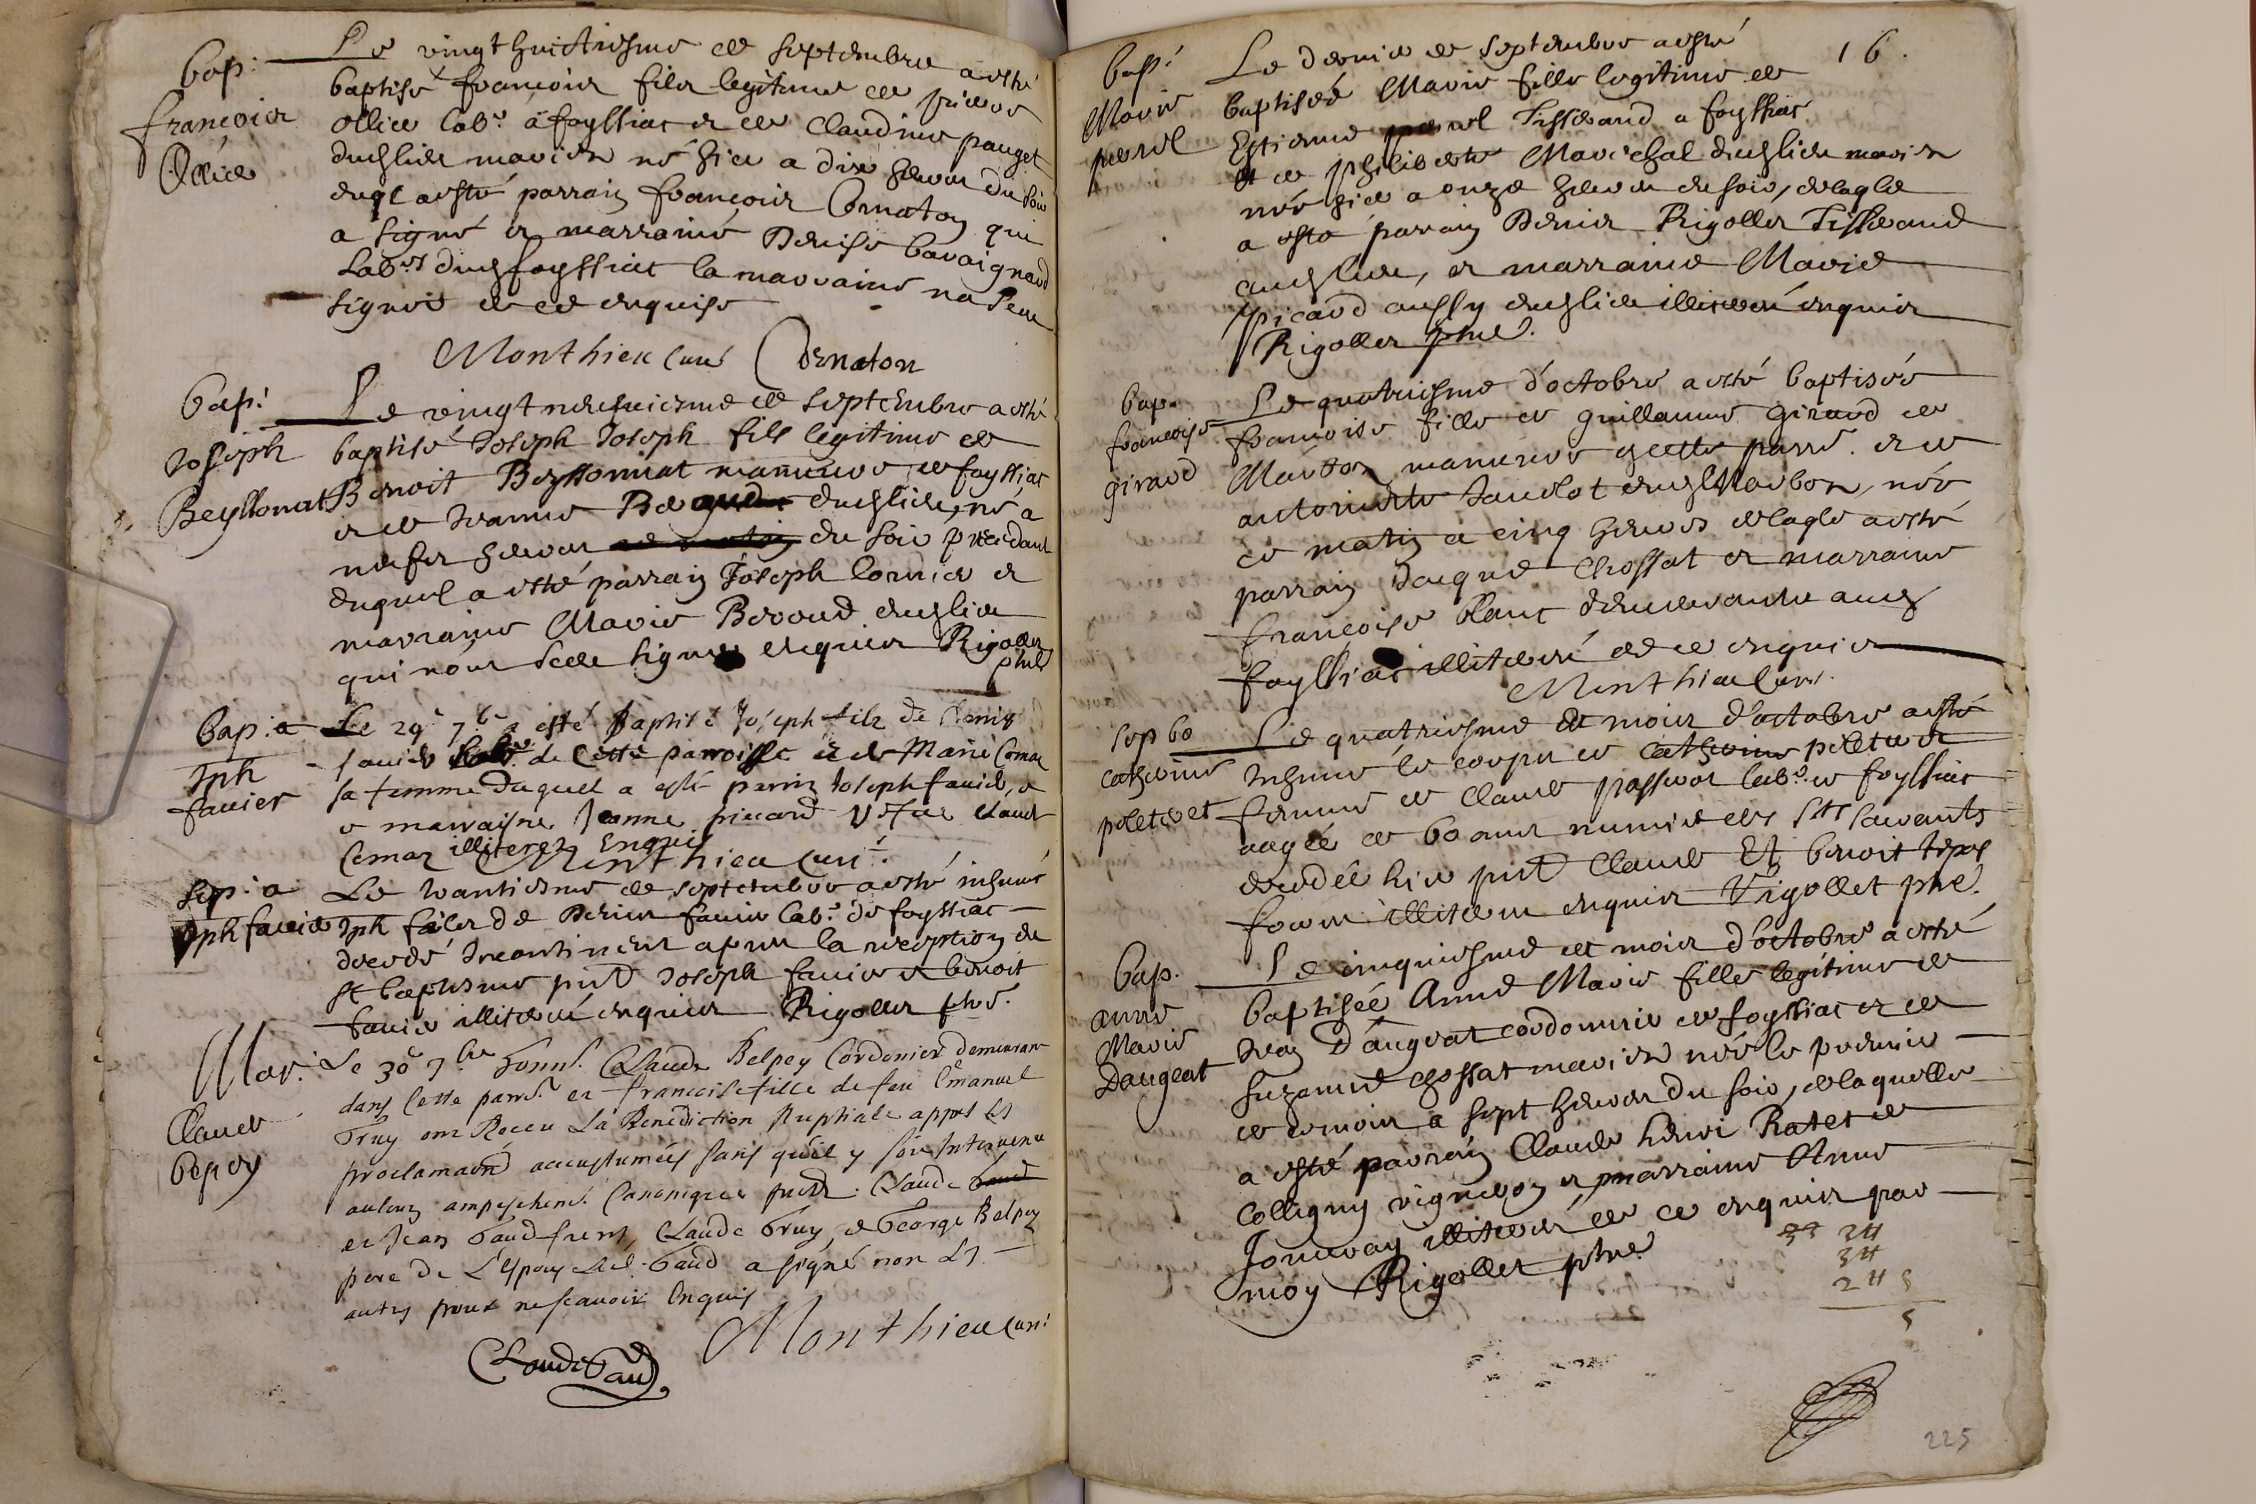 Bap:
francois
Ollier
Le vingt huictiesme de septembre a esté
baptisé francois filz legitime de pierre
Ollier labr. a foyssiat et de Claudine pauget
dudlieu mariez né hier a dix heures du soir
duql a esté parrain francois Cornaton qui
a signé et marraine Denise bavaignard
dud foyssiat la marraine na sceu
signer de ce enquise
Monthieu curé Cornaton
Bap:
Joseph
Beyssonnat
Le vingt neufviesme de septembre a esté
baptisé Joseph Joseph filz legitime de
Benoit Beyssonnat manuvre de foyssiat
et de Jeanne dudlieu, né a
neufz heures du soir precedant
duquel a esté parrain Joseph cornier et
marraine Marie Beroud dudlieu
qui nont sceu signer enquis Rigollet
phre
Bap: a
Jph
favier
Le 29e 7bre a esté Baptisé Joseph filz de Denis
favier labr. de cette parroisse et de Marie Cemar
sa femme duquel a esté parrin Joseph favier, et
et marrayne Jeanne pricard Claude
Cemar illiterez Enquis
Monthieu curé
Sep: a
Jph favier
Le trantiesme de septembre a esté inhumé
Jph filz de Denis favier labr. de foyssiat
decedé Incontinent apres la reception du
St baptesme pnt Joseph favier et benoit
favier illiteré enquis Rigollet phre.
Mar:
Claude
bepey
Le 30e 7bre honn. Claude Belpey Cordonier demeurant
dans cette parr. et francoise fille de feu Emanuel
Truy ont Receu La Benediction Nuptiale appres les
proclamaons accustumées sans quil y soit Intervenu
aulcun ampeschemt. Canonique pnts. Claude
et Jean Gaud freres, Claude Truy, et George Belpey
pere de L'Espoux Led. Gaud a signé non les
autres pour ne scavoir Enquis
Monthieu curé
Claude Gaud
16.
Bap:
Marie
perrel
Le dernier de septembre a esté
baptiseé Marie fille legitime de
Estienne perrel Tisserand a foyssiat
et de philiberte Marechal dudlieu mariez
née hier a onze heures du soir, delaqle
a esté parrain Denis Rigollet Tisserand
audlieu, et marraine Marie
picard aussy dudlieu illiterés enquis
Rigollet phre.
bap.
francoise
giraud
Le quatriesme d'octobre a esté baptisée
francoise fille de guillaume giraud de
manuvre de cette parre. et de
Janelot dud Marbon, née
ce matin a cinq heures delaqle a esté
parrain Jaque Chossat et marraine
francoise blanc demeurante aud
foyssiat illiteré de ce enquis
Monthieu curé.
Sep 60
catherine
peletret
Le quatriesme du mois d'octobre a esté
Inhumé le corps de Catherine peletret
femme de Claude labr. de foyssiat
aagée de 60 ans munie des Sts Sacrants
decedée hier pnt Claude Et benoit
illiterés enquis Rigollet phre.
Bap.
anne
Marie
Daugeat
Le cinquiesme du mois d'octobre a esté
baptiséé Anne Marie fille legitime de
Jean Daugeat cordonnier de foyssiat et de
Suzanne chossat mariez née le premier
de ce mois a sept heures du soir, de laquelle
a esté parrain Claude henri Ratet de
Colligny vigneron et marraine Anne
Jonneray illiterés de ce enquis par
moy Rigollet phre
225